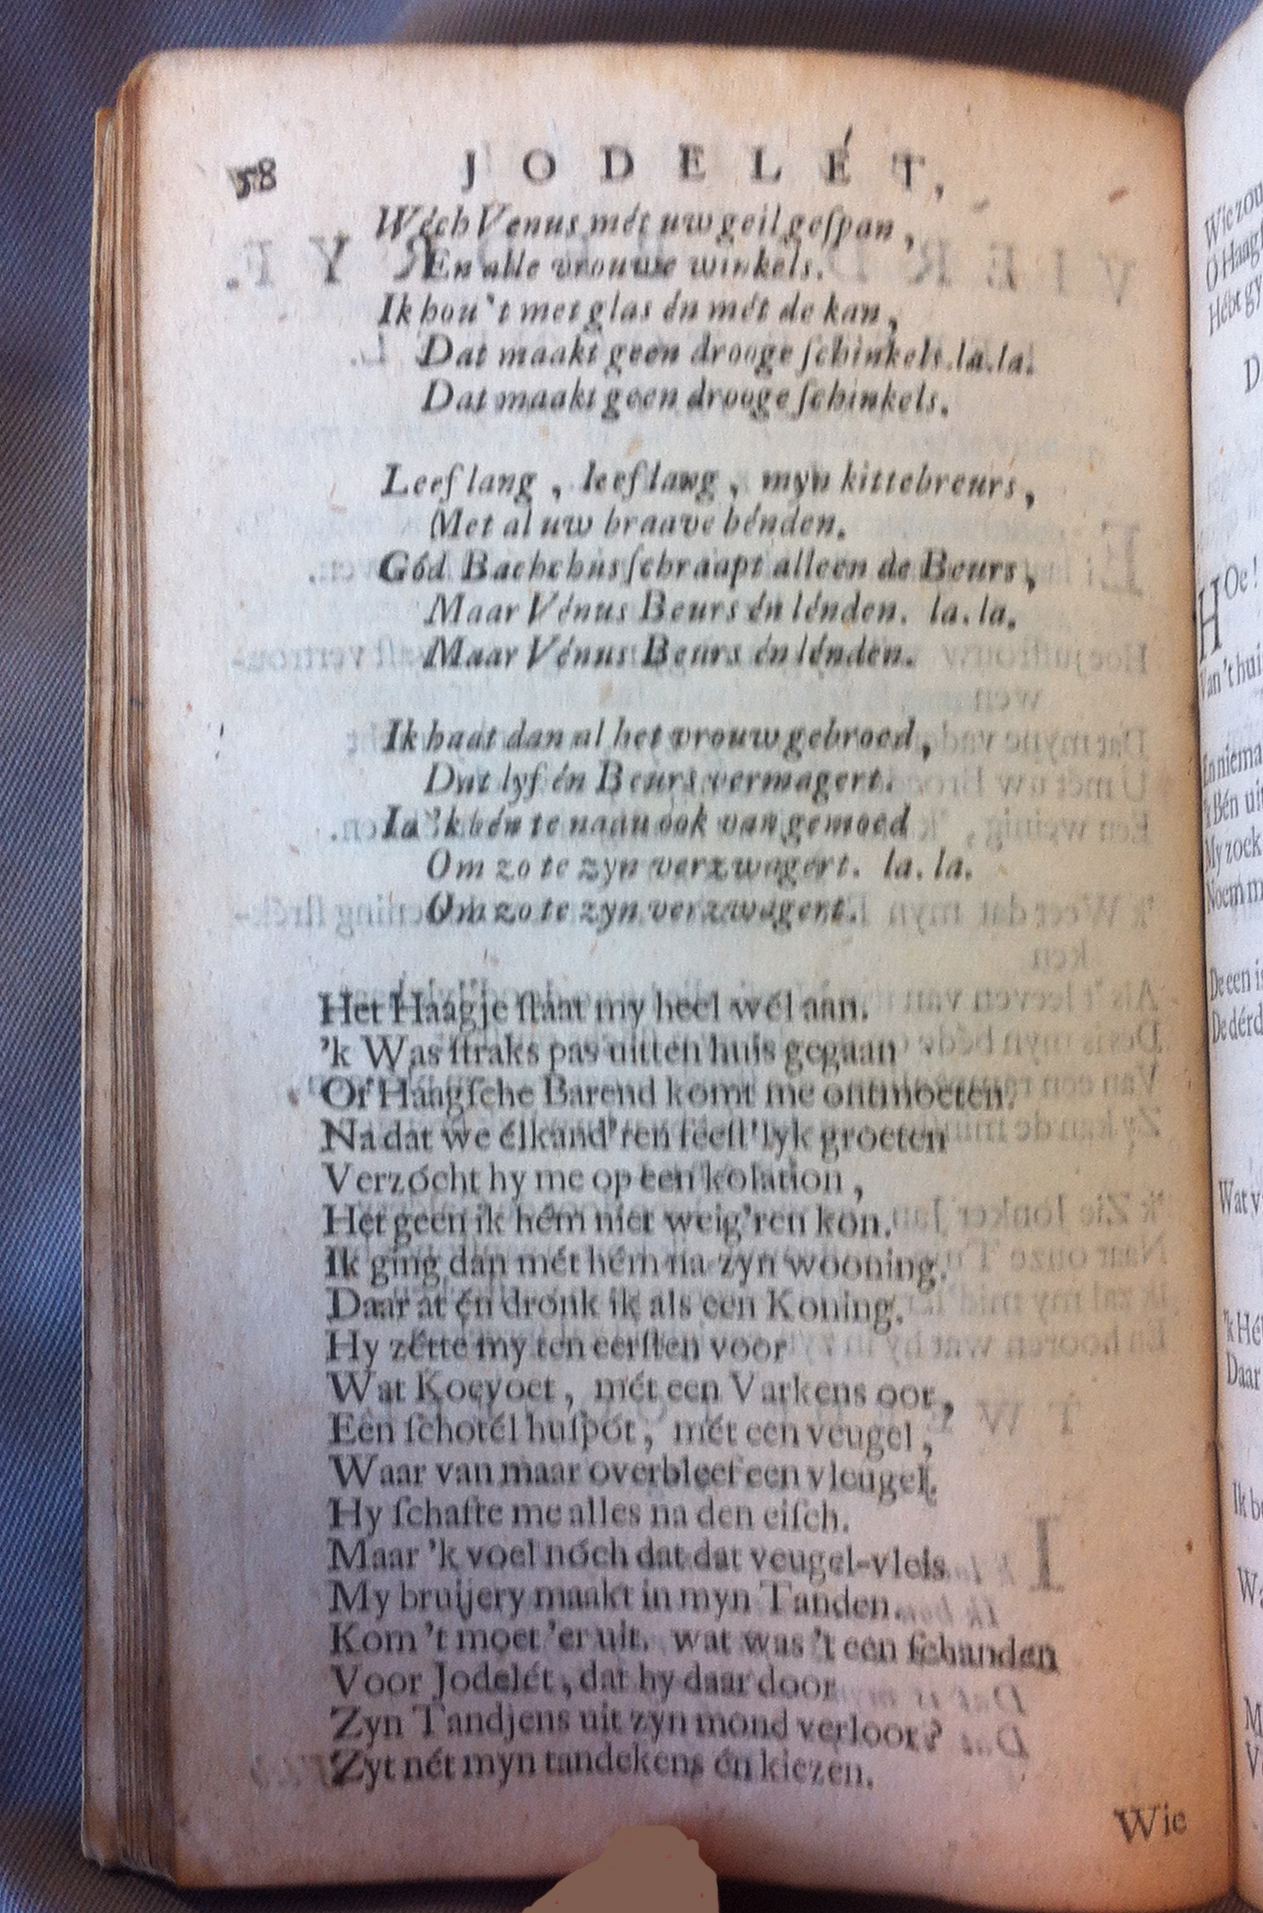 58 JODELÉT,
Wéch Venus mét uw geil geſpan,
En alle vrouwe winkels.
Ik hou't met glas én mét de kan,
Dat maakt geen drooge ſchinkels. la. la.
Dat maakt geen drooge ſchinkels.
Leef lang, leef lang, myn kittebreurs,
Met al uw braave bénden.
Gód Bachchus ſchraapt alleen de Beurs,
Maar Vénus Beurs én lénden. la. la.
Maar Vénus Beurs én lénden.
Ik haat dan al het vrouw gebroed,
Dat lyf én Beurs vermagert.
Ia 'k bén te naau ook van gemoed
Om zo te zyn verzwagert. la. la.
Om zo te zyn verzwagert.
Het Haagje ſtaat my heel wél aan.
'k Was ſtraks pas uitten huis gegaan
Of Haagſche Barend komt me ontmoeten.
Na dat we élkand'ren feeſt'lyk groeten
Verzócht hy me op een kolation,
Het geen ik hém niet weig'ren kon.
Ik ging dan mét hém na zyn wooning.
Daar at én dronk ik als een Koning.
Hy zétte my ten eerſten voor
Wat Koeyoet, mét een Varkens oor,
Een ſchotél huſpót, mét een veugel,
Waar van maar overbleef een vleugel.
Hy ſchafte me alles na den eiſch.
Maar 'k voel nóch dat dat veugel-vleis
My bruijery maakt in myn Tanden.
Kom 't moet 'er uit. wat was 't een ſchanden
Voor Jodelét, dat hy daar door
Zyn Tandjens uit zyn mond verloor?
Zyt nét myn tandekens én kiezen.
Wie